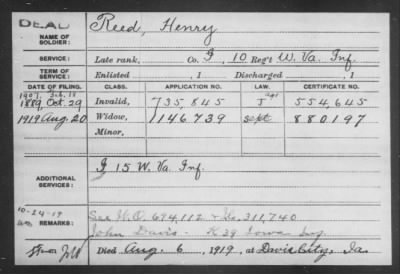 DEAD
NAME OF SOLDIER: Reed, Henry
SERVICE: Late rank, Co. I, 10 Reg't W. Va. Inf.
TERM OF SERVICE: Enlisted , 1 Discharged , 1
DATE OF FILING. CLASS. APPLICATION NO. LAW. CERTIFICATE NO.
1907. Feb. 18
1889, Oct. 29 Invalid, 735,845 J 554,645
1919 Aug. 20 Widow, 1146,739 Sept 880197
Minor,
ADDITIONAL SERVICES: I 15 W. Va. Inf.
10-24-19
REMARKS: See W.O. 694,112 & Wo. 311,740
John Davis - K 39 Iowa Inf.
Died Aug. 6, 1919, at Davis City, Ia.